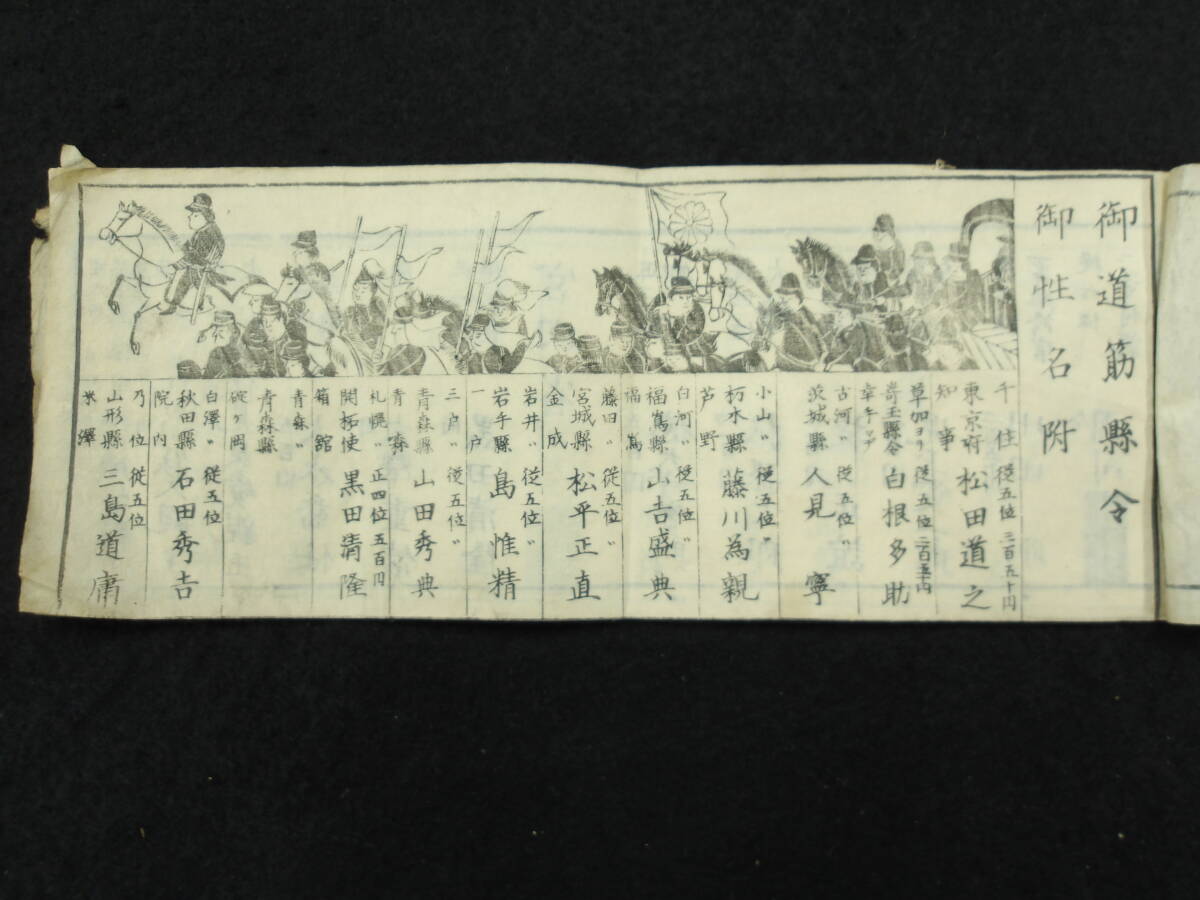 御道筋縣令
御性名附
千住 従五位 三百五十円
東京府 松田道之
知事
草加ヨリ 従五位 二百五十円
埼玉縣令 白根多助
幸手マデ
古河〃 従五位〃
茨城縣 人見寧
小山〃 従五位〃
栃木縣 藤川為親
芦野
白河〃 従五位〃
福島縣 山吉盛典
福島
藤田〃 従五位〃
宮城縣 松平正直
金成
岩井〃 従五位〃
岩手縣 島惟精
一戸
三戸〃 従五位〃
青森縣 山田秀典
青森
札幌〃 正四位 五百円
開拓使 黒田清隆
箱舘
青森〃
青森縣
碇ヶ岡
白澤〃 従五位
秋田縣 石田秀吉
院内
乃位 従五位
山形縣 三島道庸
米澤